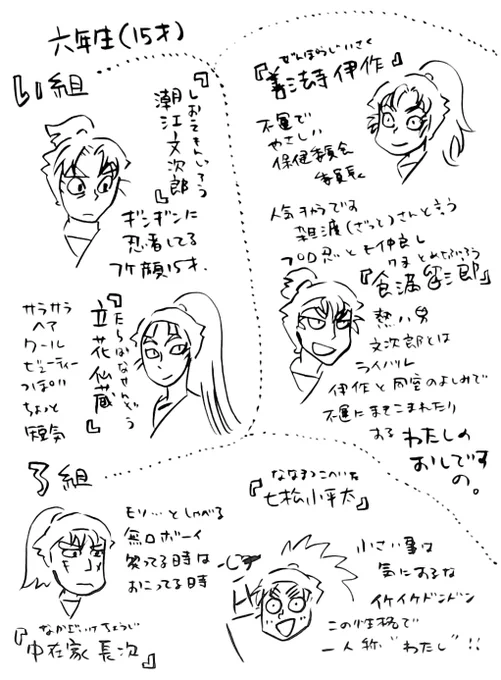 六年生(15才)
い組
『しおえもんじろう
潮江文次郎』
ギンギンに
忍者してる
フケ顔15才.
『たちばなせんぞう
立花仙蔵』
サラサラ
ヘア
クール
ビューティー
っぽい!!
ちょっと
短気
『ぜんぽうじいさく
善法寺伊作』
不運で
やさしい
保健委員会
委員長
人気キャラです
雑渡(ざっと)さんと言う
プロ忍とも仲良し
『けまとめさぶろう
食満留三郎』
熱い男
文次郎とは
ライバル
伊作と同室のよしみで
不運にまきこまれたり
する
わたしの
おしです
の。
ろ組
モソ…としゃべる
無口ボーイ
笑ってる時は
おこってる時
『なかざいけちょうじ
中在家長次』
ななまつこへいた
『七松小平太』
小さい事は
気にするな
イケイケドンドン
この性格で
一人称"わたし"!!